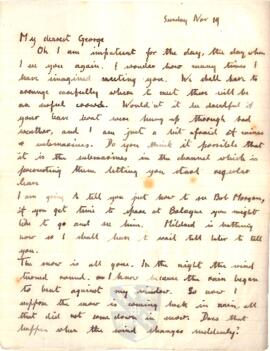 Sunday Nov 19
My dearest George
Oh I am impatient for the day, the day when
I see you again. I wonder how many times I
have imagined meeting you. We shall have to
arrange carefully where to meet there will be
an awful crowd. Would it be dreadful if
your leave went hung up through bad
weather, and I am just a bit afraid of mines
& submarines. Do you think it possible that
it is the submarines in the channel which is
preventing them letting you start regular
leave
I am going to tell you just now to see Bob Morgan,
if you get time to space at Bologne you might
like to go and see him. Mildred is bathing
now so I shall have to wait till later to tell
you.
The snow is all gone. In the night the wind
turned round. I know because the rain began
to beat against my window. So now I
suppose the snow is coming back in rain, all
that did not come down in snow. Does that
happen when the wind changes suddenly?